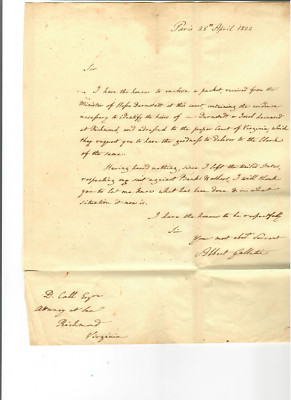 Paris 28th April 1822
Sir
I have the honor to enclose a packet, received from the
Minister of Hesse Darmstadt at this court, containing the evidence
necessary to identify the heirs of Darmstadt a Jew deceased
at Richmond, and adressed to the proper Court of Virginia, which
they request you to have the goodness to deliver to the clerk
of the same.
Having heard nothing, since I left the United States,
respecting my suit against Banks & others, I will thank
you to let me know what has been done & in what
situation it now is.
I have the honour to be respectfully
Sir
Your most obedt. Servant
Albert Gallatin
D. Call Esqre
Attorney at Law
Richmond
Virginia